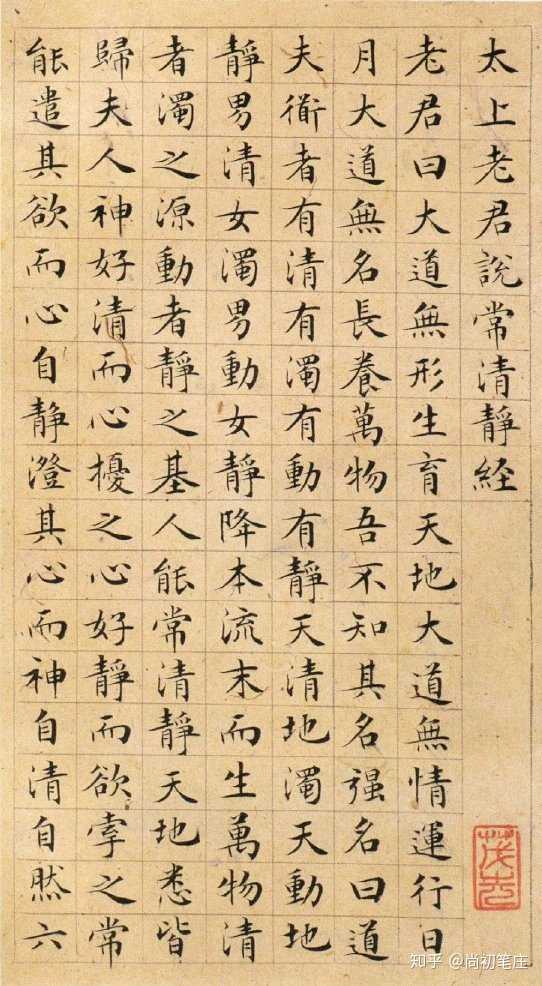 太上老君說常清靜経
老君曰大道無形生育天地大道無情運行日
月大道無名長養萬物吾不知其名强名曰道
夫衜者有清有濁有動有靜天清地濁天動地
靜男清女濁男動女靜降本流末而生萬物清
者濁之源動者靜之基人能常清靜天地悉皆
歸夫人神好清而心擾之心好靜而欲牽之常
能遣其欲而心自靜澄其心而神自清自然六
知乎 @尚初笔庄